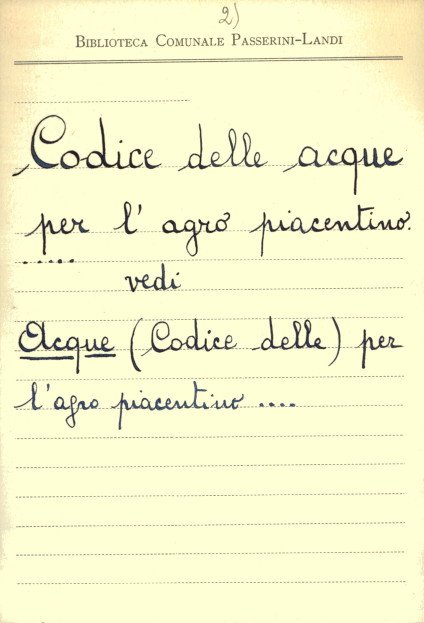 2)
BIBLIOTECA COMUNALE PASSERINI-LANDI
Codice delle acque
per l' agro piacentino.
.....
vedi
Acque (Codice delle) per
l'agro piacentino ....